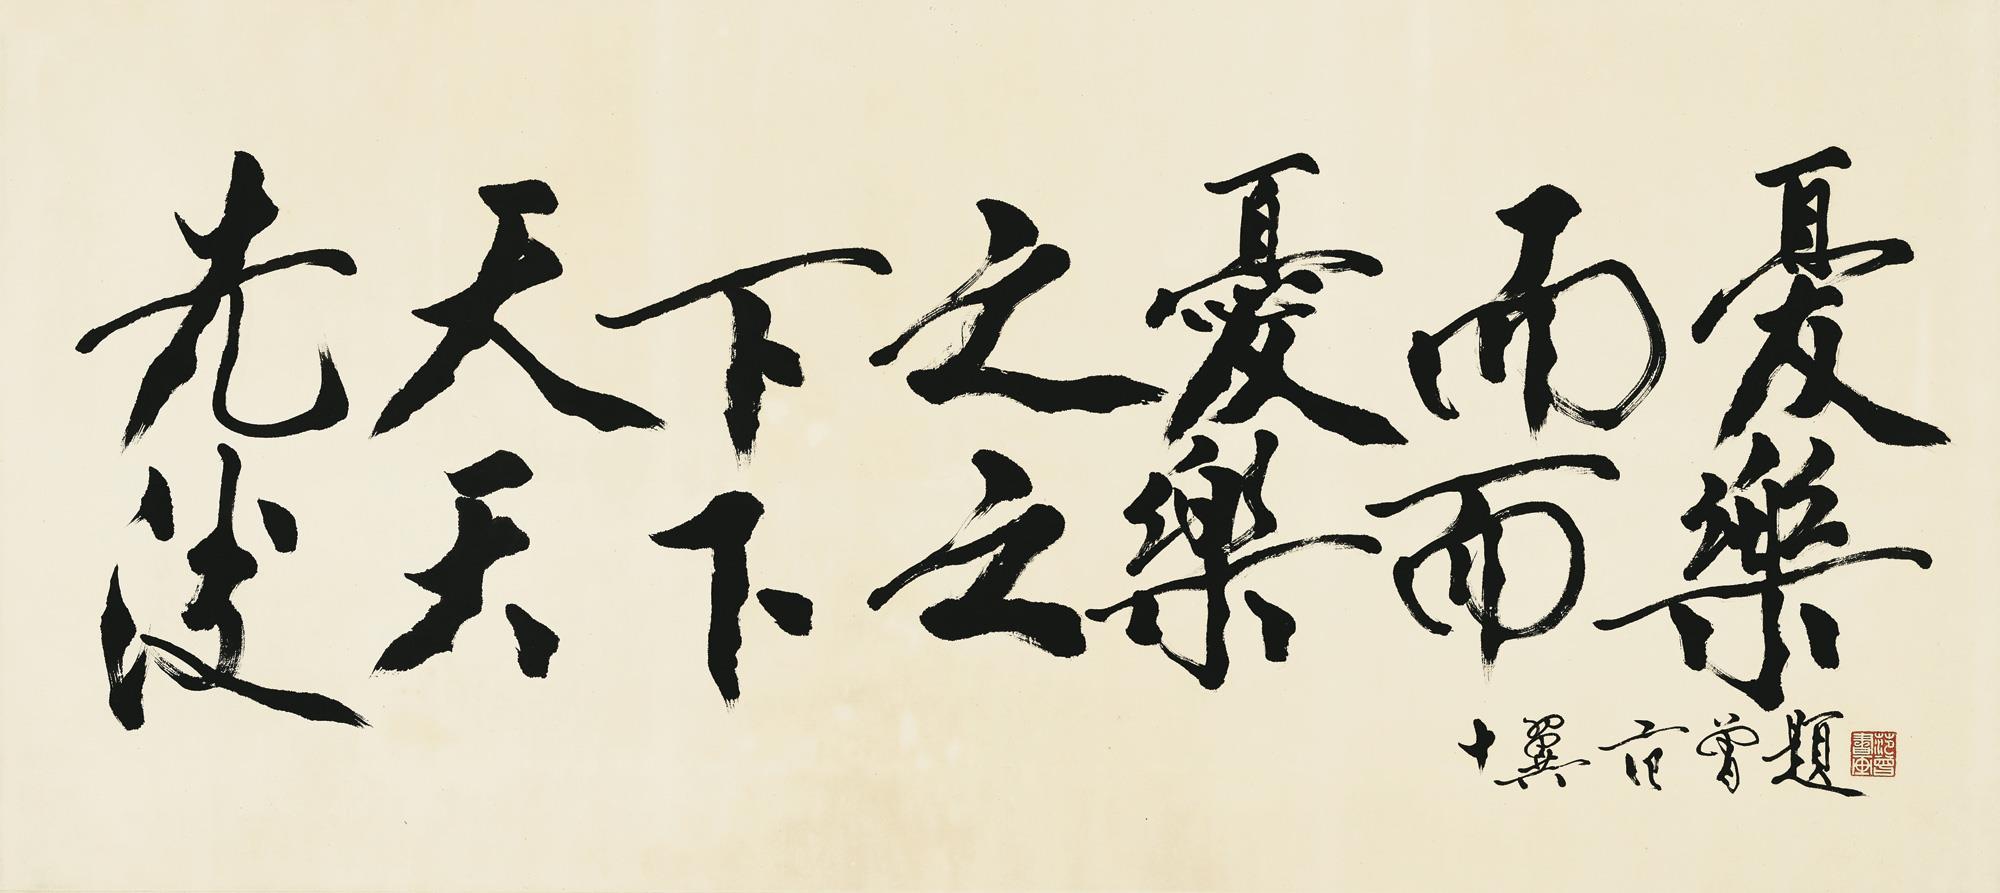 先天下之憂而憂
後天下之樂而樂
十翼范曾題